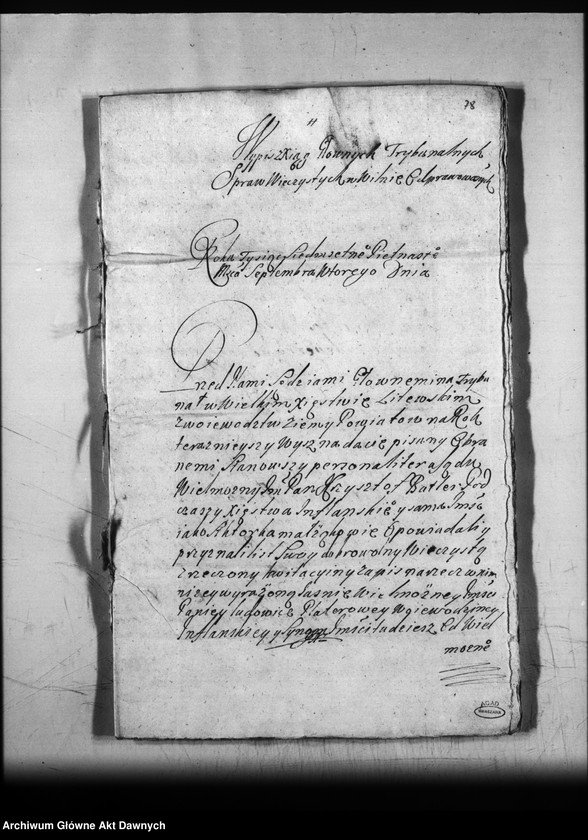 78
Wypis z Xiąg Głownych Trybunalnych
Spraw Wieczystych w Wilnie Odprawowanych
Roku Tysiąc Siedmsetnẻ Pietnastẻ
Mca Septembra Wtorego Dnia
Przed Nami Sędziami Głownemi na Trybu
nał w Wielkim Xięstwie Litewskim
z woiewodztw Ziemy Powiatow na Rok
teraznieyszy wysz na dacie pisany Obra
nemi Stanowszy personaliter a sądu
Wielmozny Im Pan Krzysztof Butler Pod
czaszy Xięstwa Inflanskiẻ y sama Imść
iako Aktorka małżąkowie Opowiadali y
przyznali list Swoy dobrowolny Wieczysty
Zrzeczony kwitacyiny Zapis na rzecz w nim
niżey wyrażoną Jasnie Wielmożney Imści
Paniey Ludowice Platerowey Woiewodziney
Inflanskiey y Synom Imści Ludziesz Od Wiel
moznẻ
AGAD
WARSZAWA
Archiwum Główne Akt Dawnych